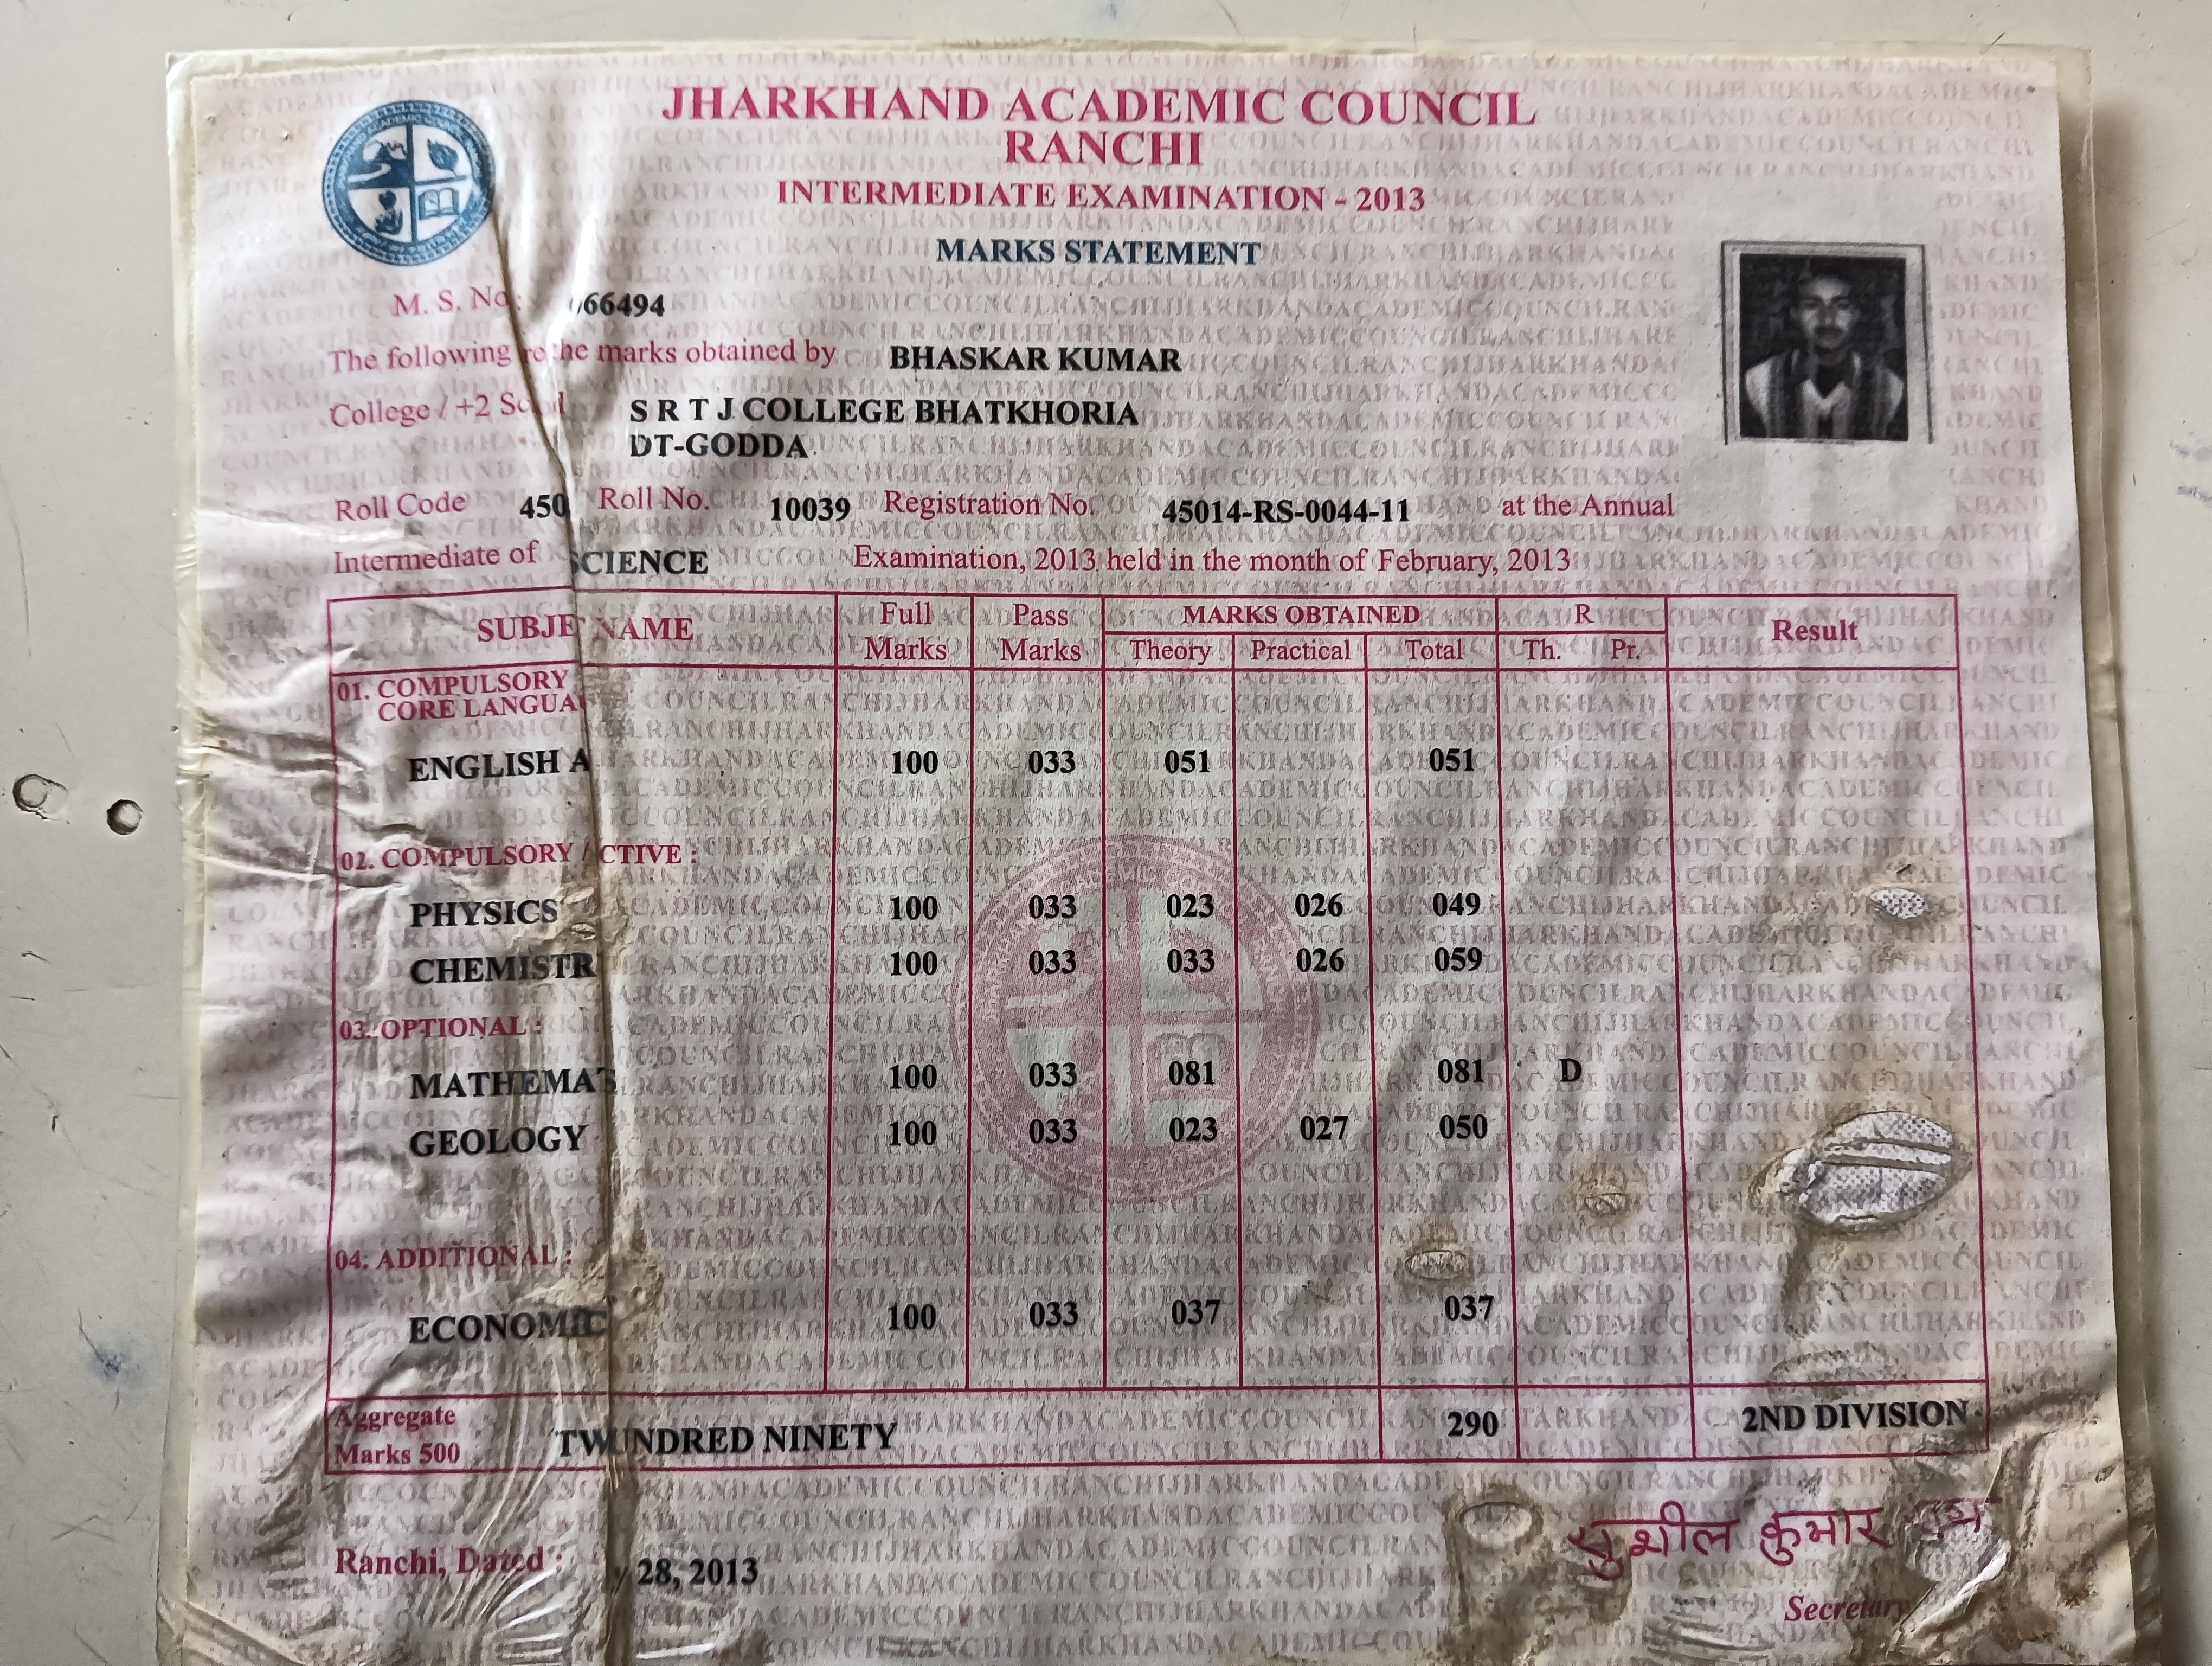 JHARKHAND ACADEMIC COUNCIL
RANCHI
INTERMEDIATE EXAMINATION - 2013
MARKS STATEMENT
M. S. No: 66494
The following re the marks obtained by BHASKAR KUMAR
College / +2 S R T J COLLEGE BHATKHORIA
DT-GODDA
Roll Code 450 Roll No. 10039 Registration No. 45014-RS-0044-11 at the Annual
Intermediate of SCIENCE Examination, 2013 held in the month of February, 2013
SUBJE NAME Full Marks Pass Marks MARKS OBTAINED R Result
Theory Practical Total Th. Pr.
01. COMPULSORY
CORE LANGUA
ENGLISH A 100 033 051 051
02. COMPULSORY / CTIVE :
PHYSICS 100 033 023 026 049
CHEMISTR 100 033 033 026 059
03. OPTIONAL :
MATHEMAT 100 033 081 081 D
GEOLOGY 100 033 023 027 050
04. ADDITIONAL :
ECONOMIC 100 033 037 037
Aggregate
Marks 500 TW UNDRED NINETY 290 2ND DIVISION
Ranchi, Dated : y 28, 2013
सुशील कुमार
Secretary